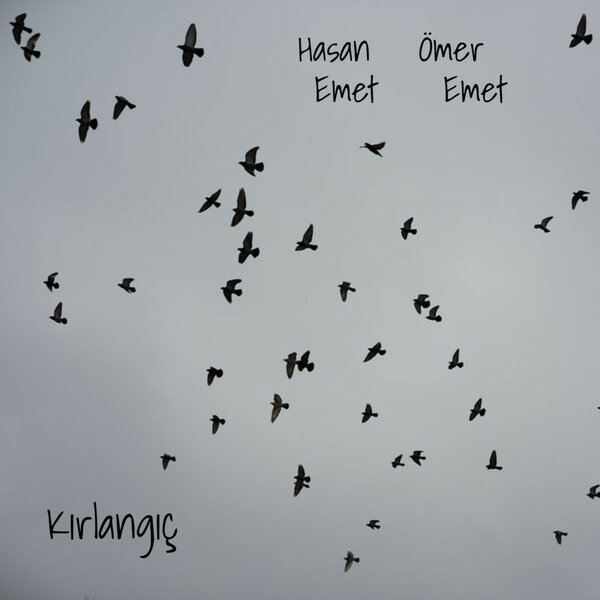 Hasan Ömer
Emet Emet
Kırlangıç